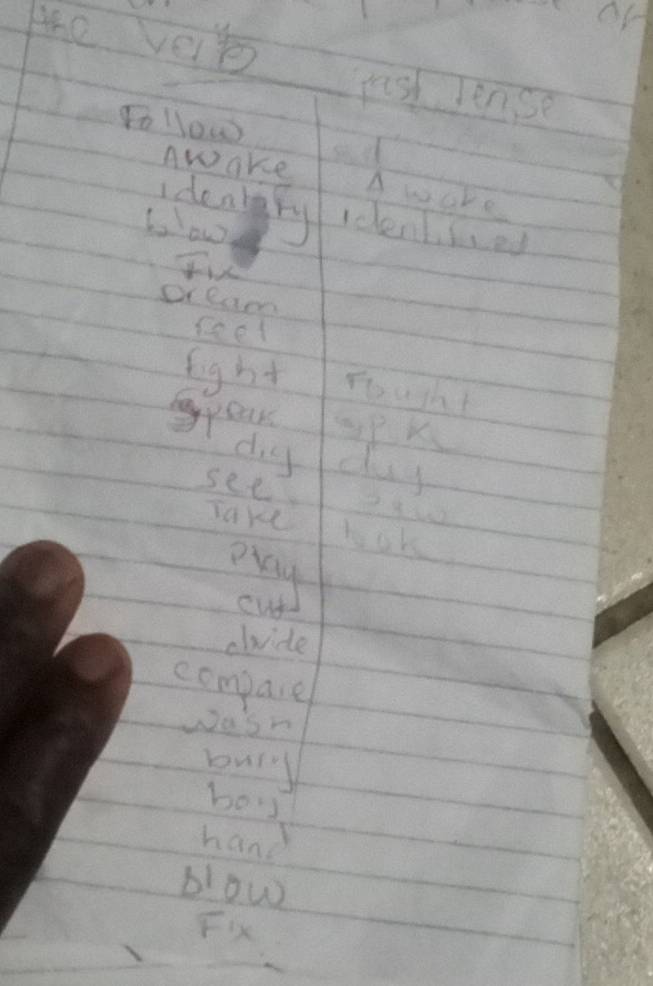 the verb past Tense
Follow ed
Awake Awake
identify identified
blow
Fix
Dream
feel
fight Fought
Speak
dig dug
see saw
Take took
Play
cut
divide
compare
wash
bury
hand
Blow
Fix